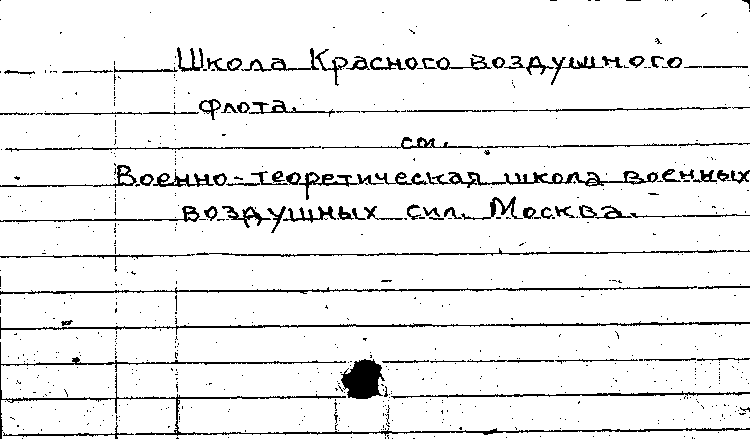 Школа Красного воздушного
флота.
см.
Военно-теоретическая школа военных
воздушных сил. Москва.